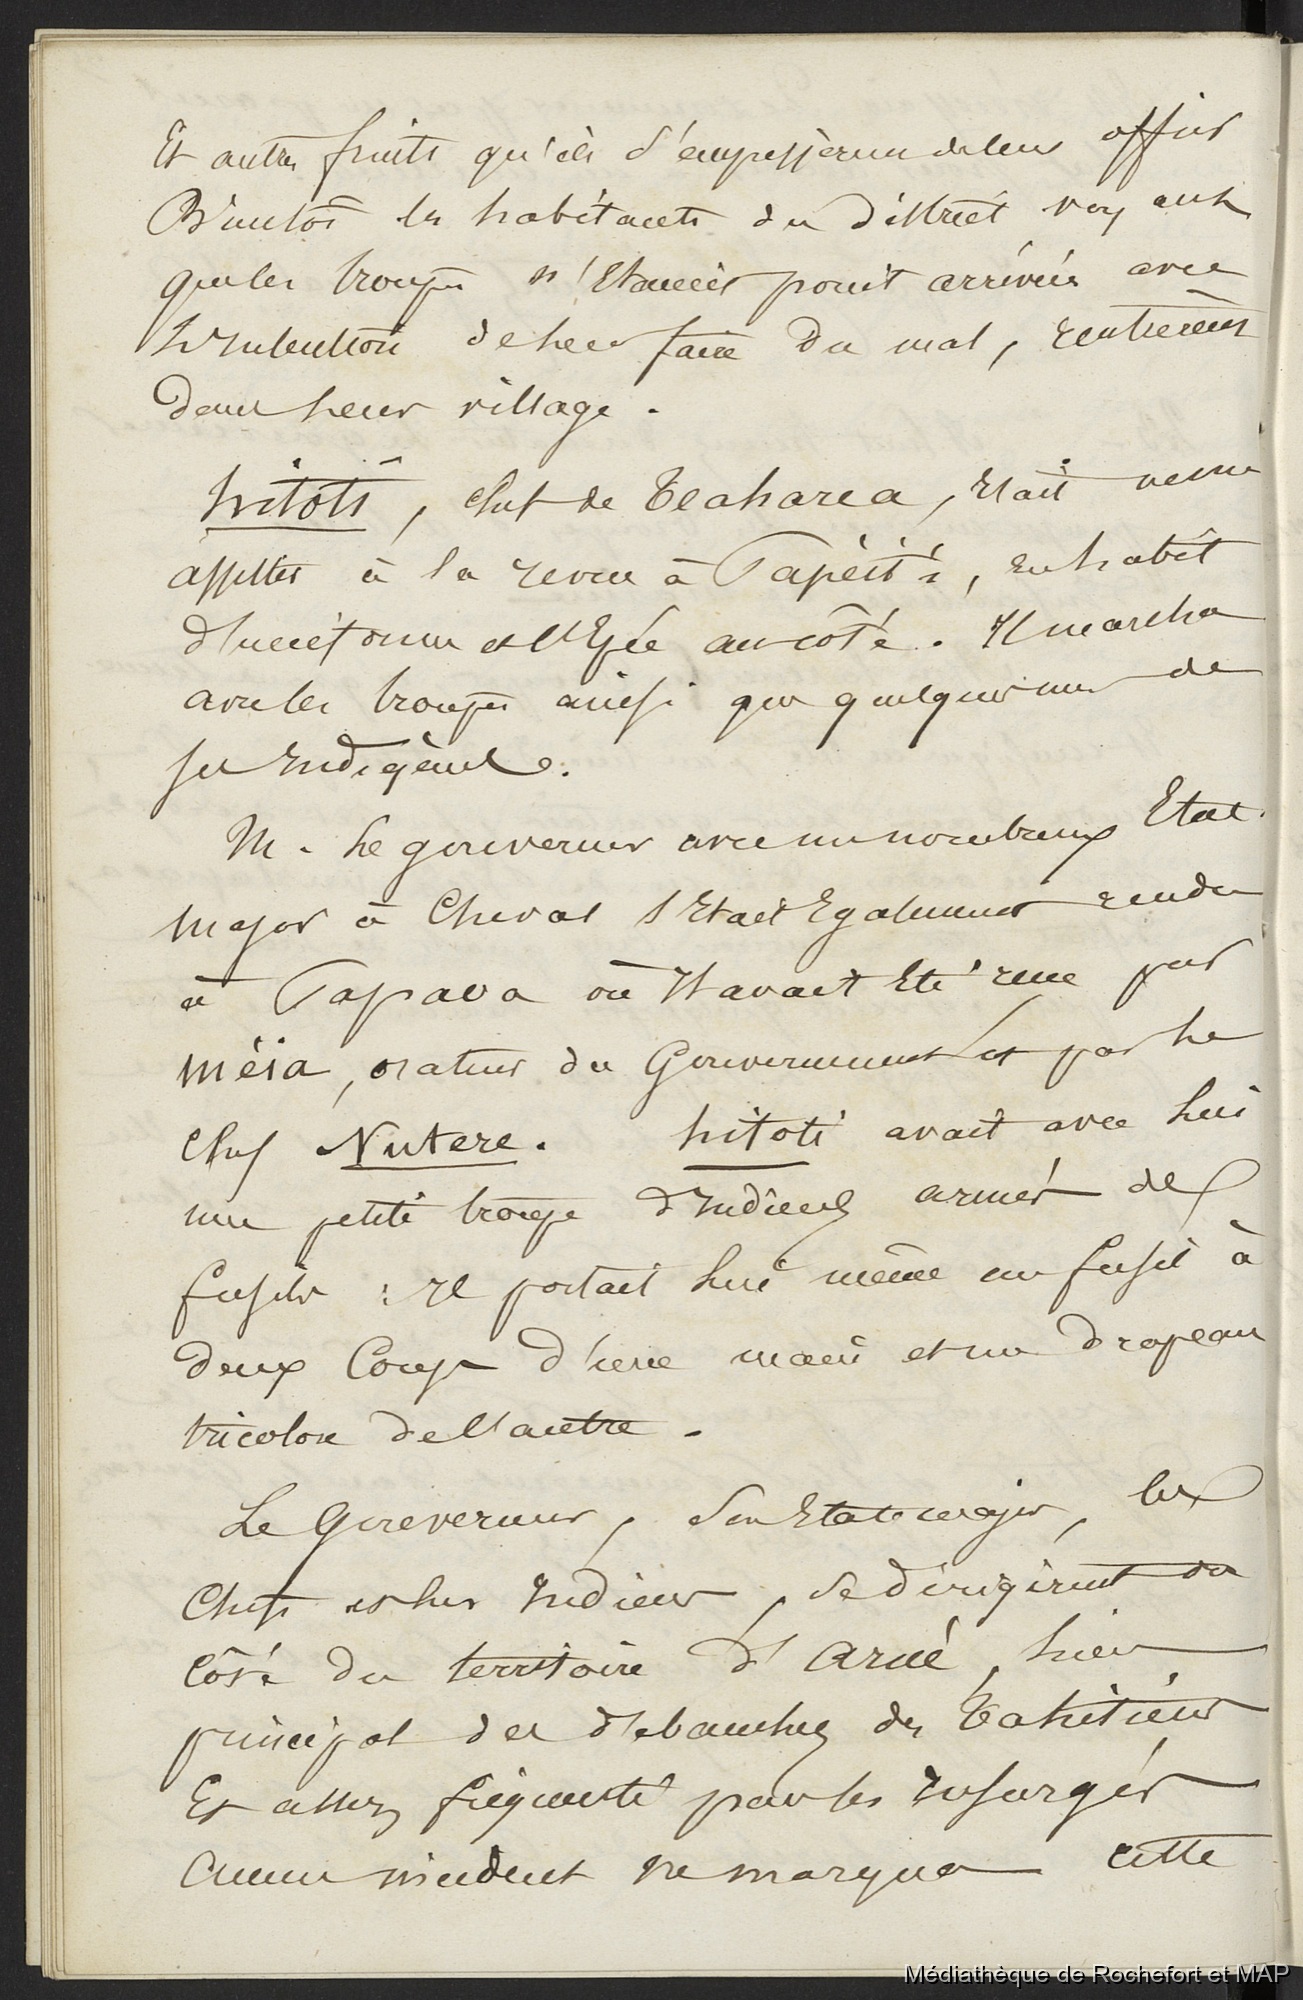 Et autres fruits qu'ils s'empressèrent de leur offrir
Bientôt les habitants du district voyant
que les troupes n'Etaient point arrivées avec
l'Intention de leur faire du mal, rentrèrent
dans leur village.
hitoti, chef de Teaharea, Etait venu
assister à la revue à Papéiti, en habit
d'uniforme et l'Epée au côté. Il marcha
avec les troupes ainsi que quelques uns de
ses Indigènes.
M. le gouverneur avec un nombreux Etat
major à Cheval s'Etait Egalement rendu
à Papava où Il avait Eté reçu par
méia, orateur du Gouvernement et par le
Chef Nutere. hitoti avait avec lui
une petite troupe d'Indiens armés de
fusils : Il portait lui même un fusil à
deux Coups d'une main et un drapeau
tricolore de l'autre.
Le Gouverneur, son Etat major, les
Chefs et les Indiens, se dirigèrent du
Côté du territoire d'Arué, lieu
principal des débauches des Tahitiens
Et assez fréquenté par les Insurgés
Aucun incident ne marqua cette
Médiathèque de Rochefort et MAP